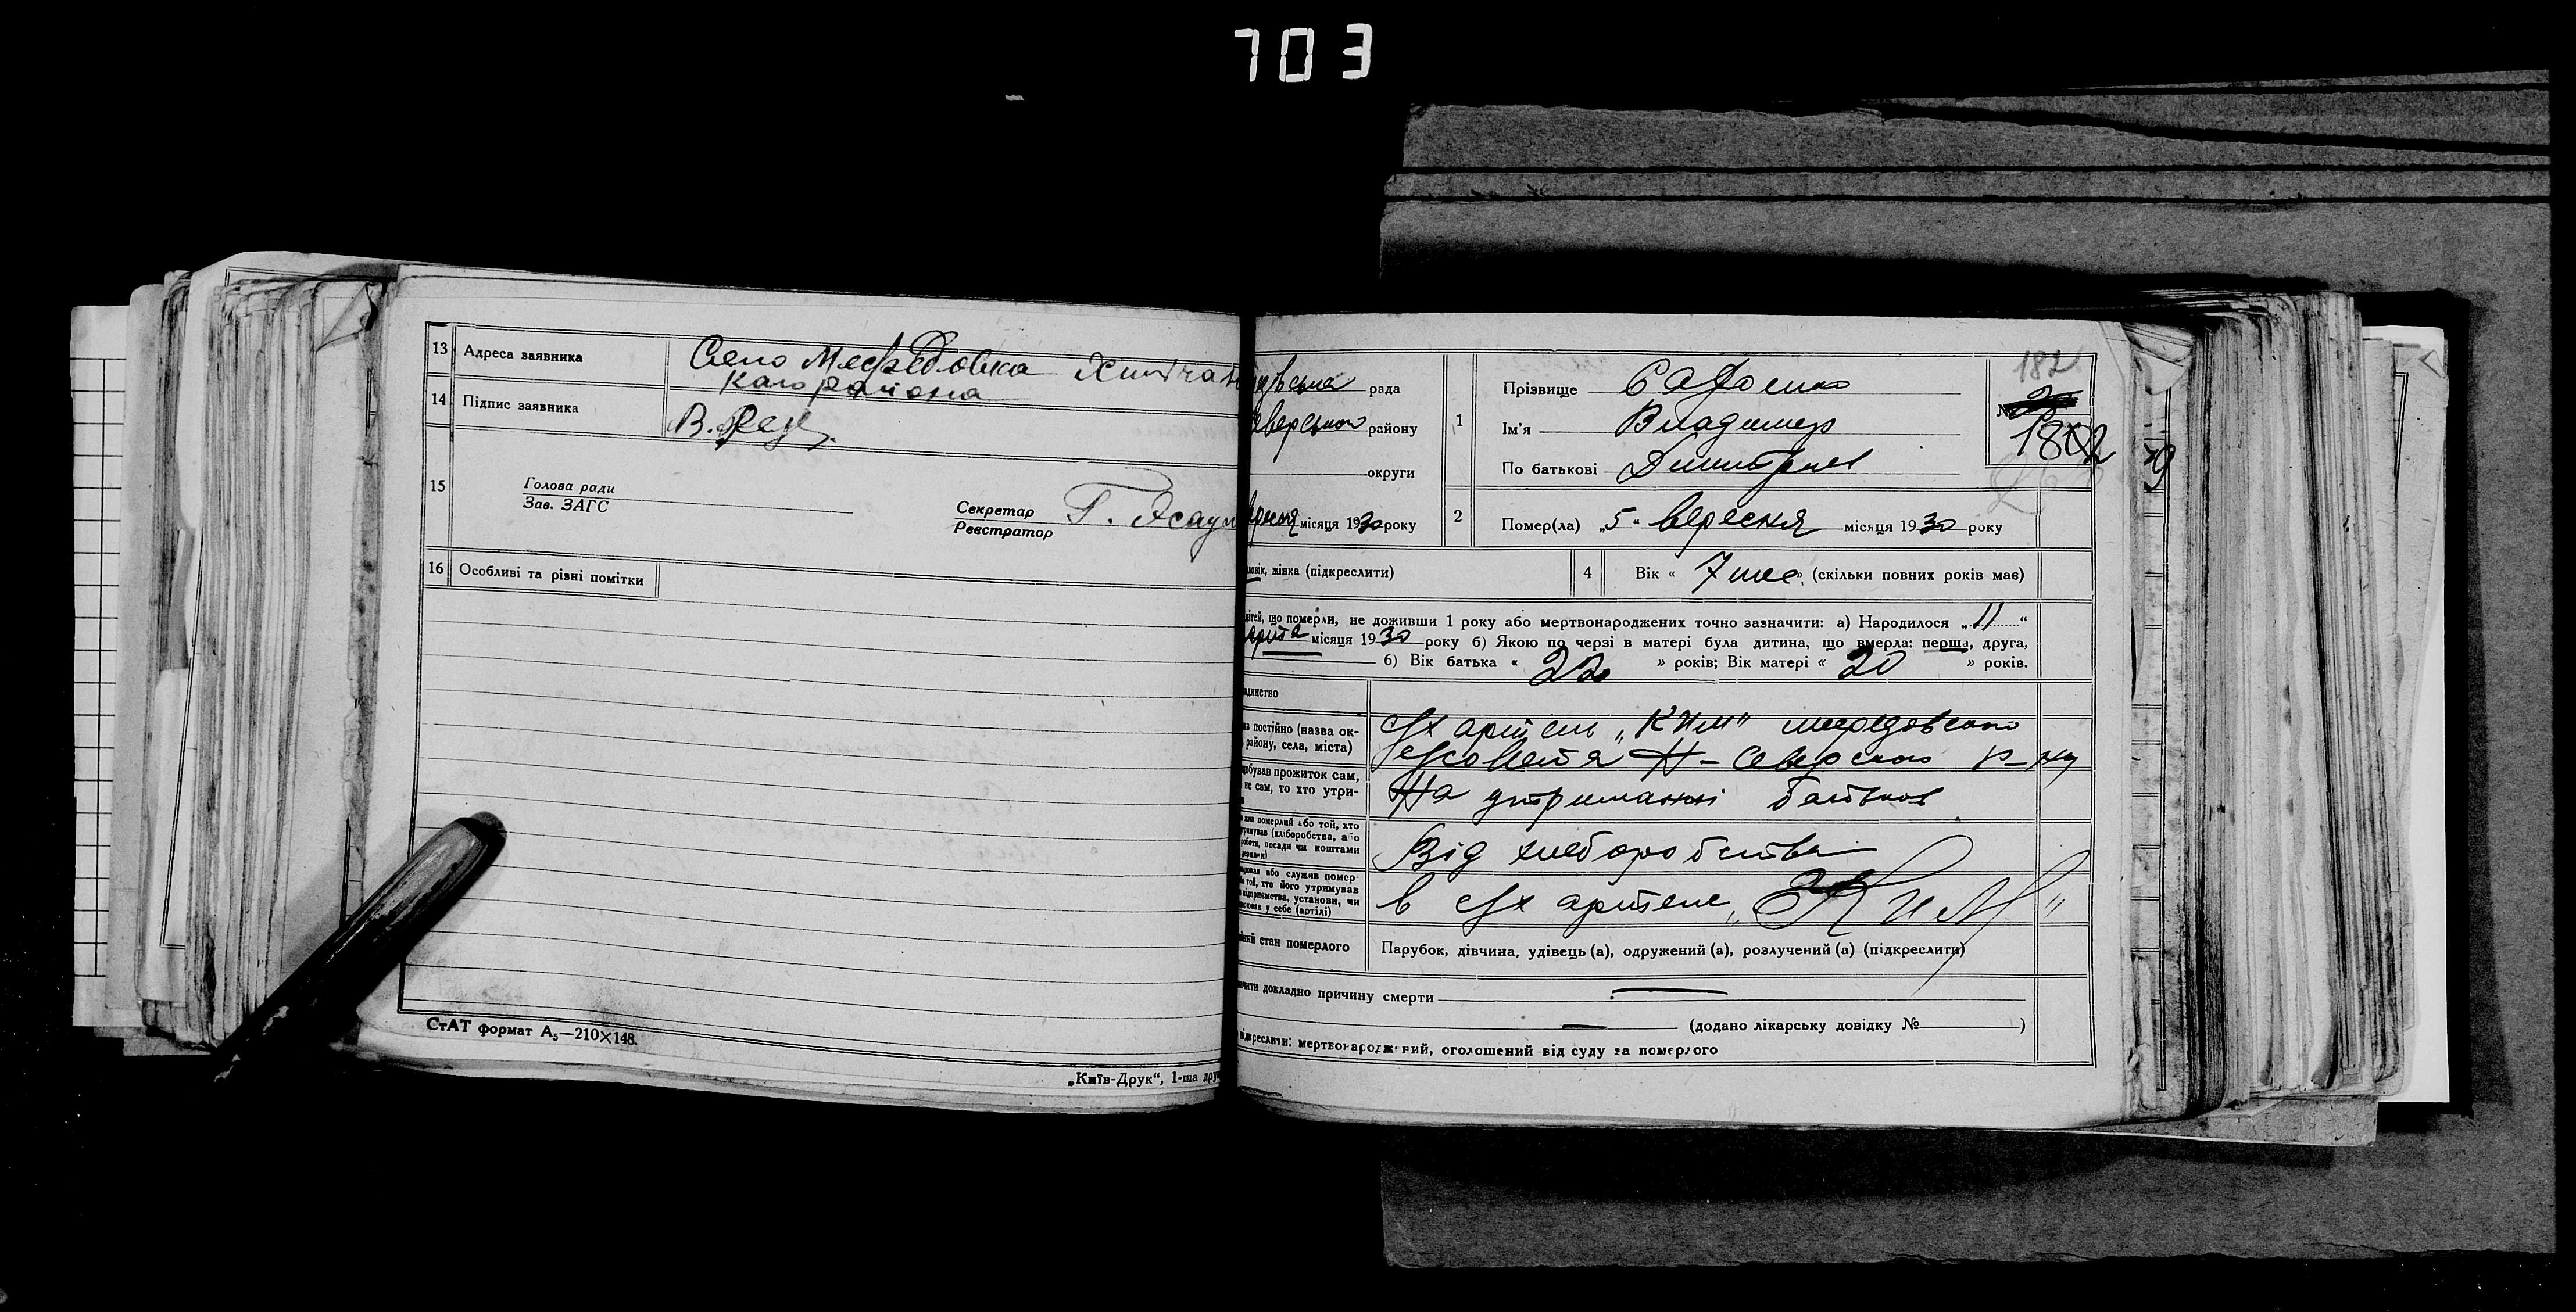 703
13 Адреса заявника Село Мефедовка Хильчан
каго района
14 Підпис заявника
15 Голова ради
Зав. ЗАГС
Секретар Г. Эсаул
Реєстратор
16 Особливі та різні помітки
СтАТ формат А5—210×148.
„Київ-Друк“, 1-ша дру
рада
району
округи
місяця 1930 року
1 Прізвище
Ім'я Владимер
По батькові
182
№
2 Помер(ла) „5“ вересня місяця 1930 року
жінка (підкреслити)
4 Вік « 7 мес. » (скільки повних років має)
що померли, не доживши 1 року або мертвонароджених точно зазначити: а) Народилося „11“
місяця 1930 року б) Якою по черзі в матері була дитина, що вмерла: перша, друга,
б) Вік батька « 22 » років; Вік матері « 20 » років.
постійно (назва ок-
району, села, міста)
с/х артель „КИМ“ мефедовского
сельсовета Н-Северского р-ну
прожиток сам,
не сам, то хто утри-
На утриманні батьков
померлий або той, хто
(хліборобства, або
роботи, посади чи коштами
Від хлеборобства
або служив помер-
той, хто його утримував
підприємства, установи, чи
у себе (артілі)
в с/х артеле „КИМ“
стан померлого
Парубок, дівчина, удівець (а), одружений (а), розлучений (а) (підкреслити)
докладно причину смерти —
— (додано лікарську довідку № )
мертвонароджений, оголошений від суду за померлого